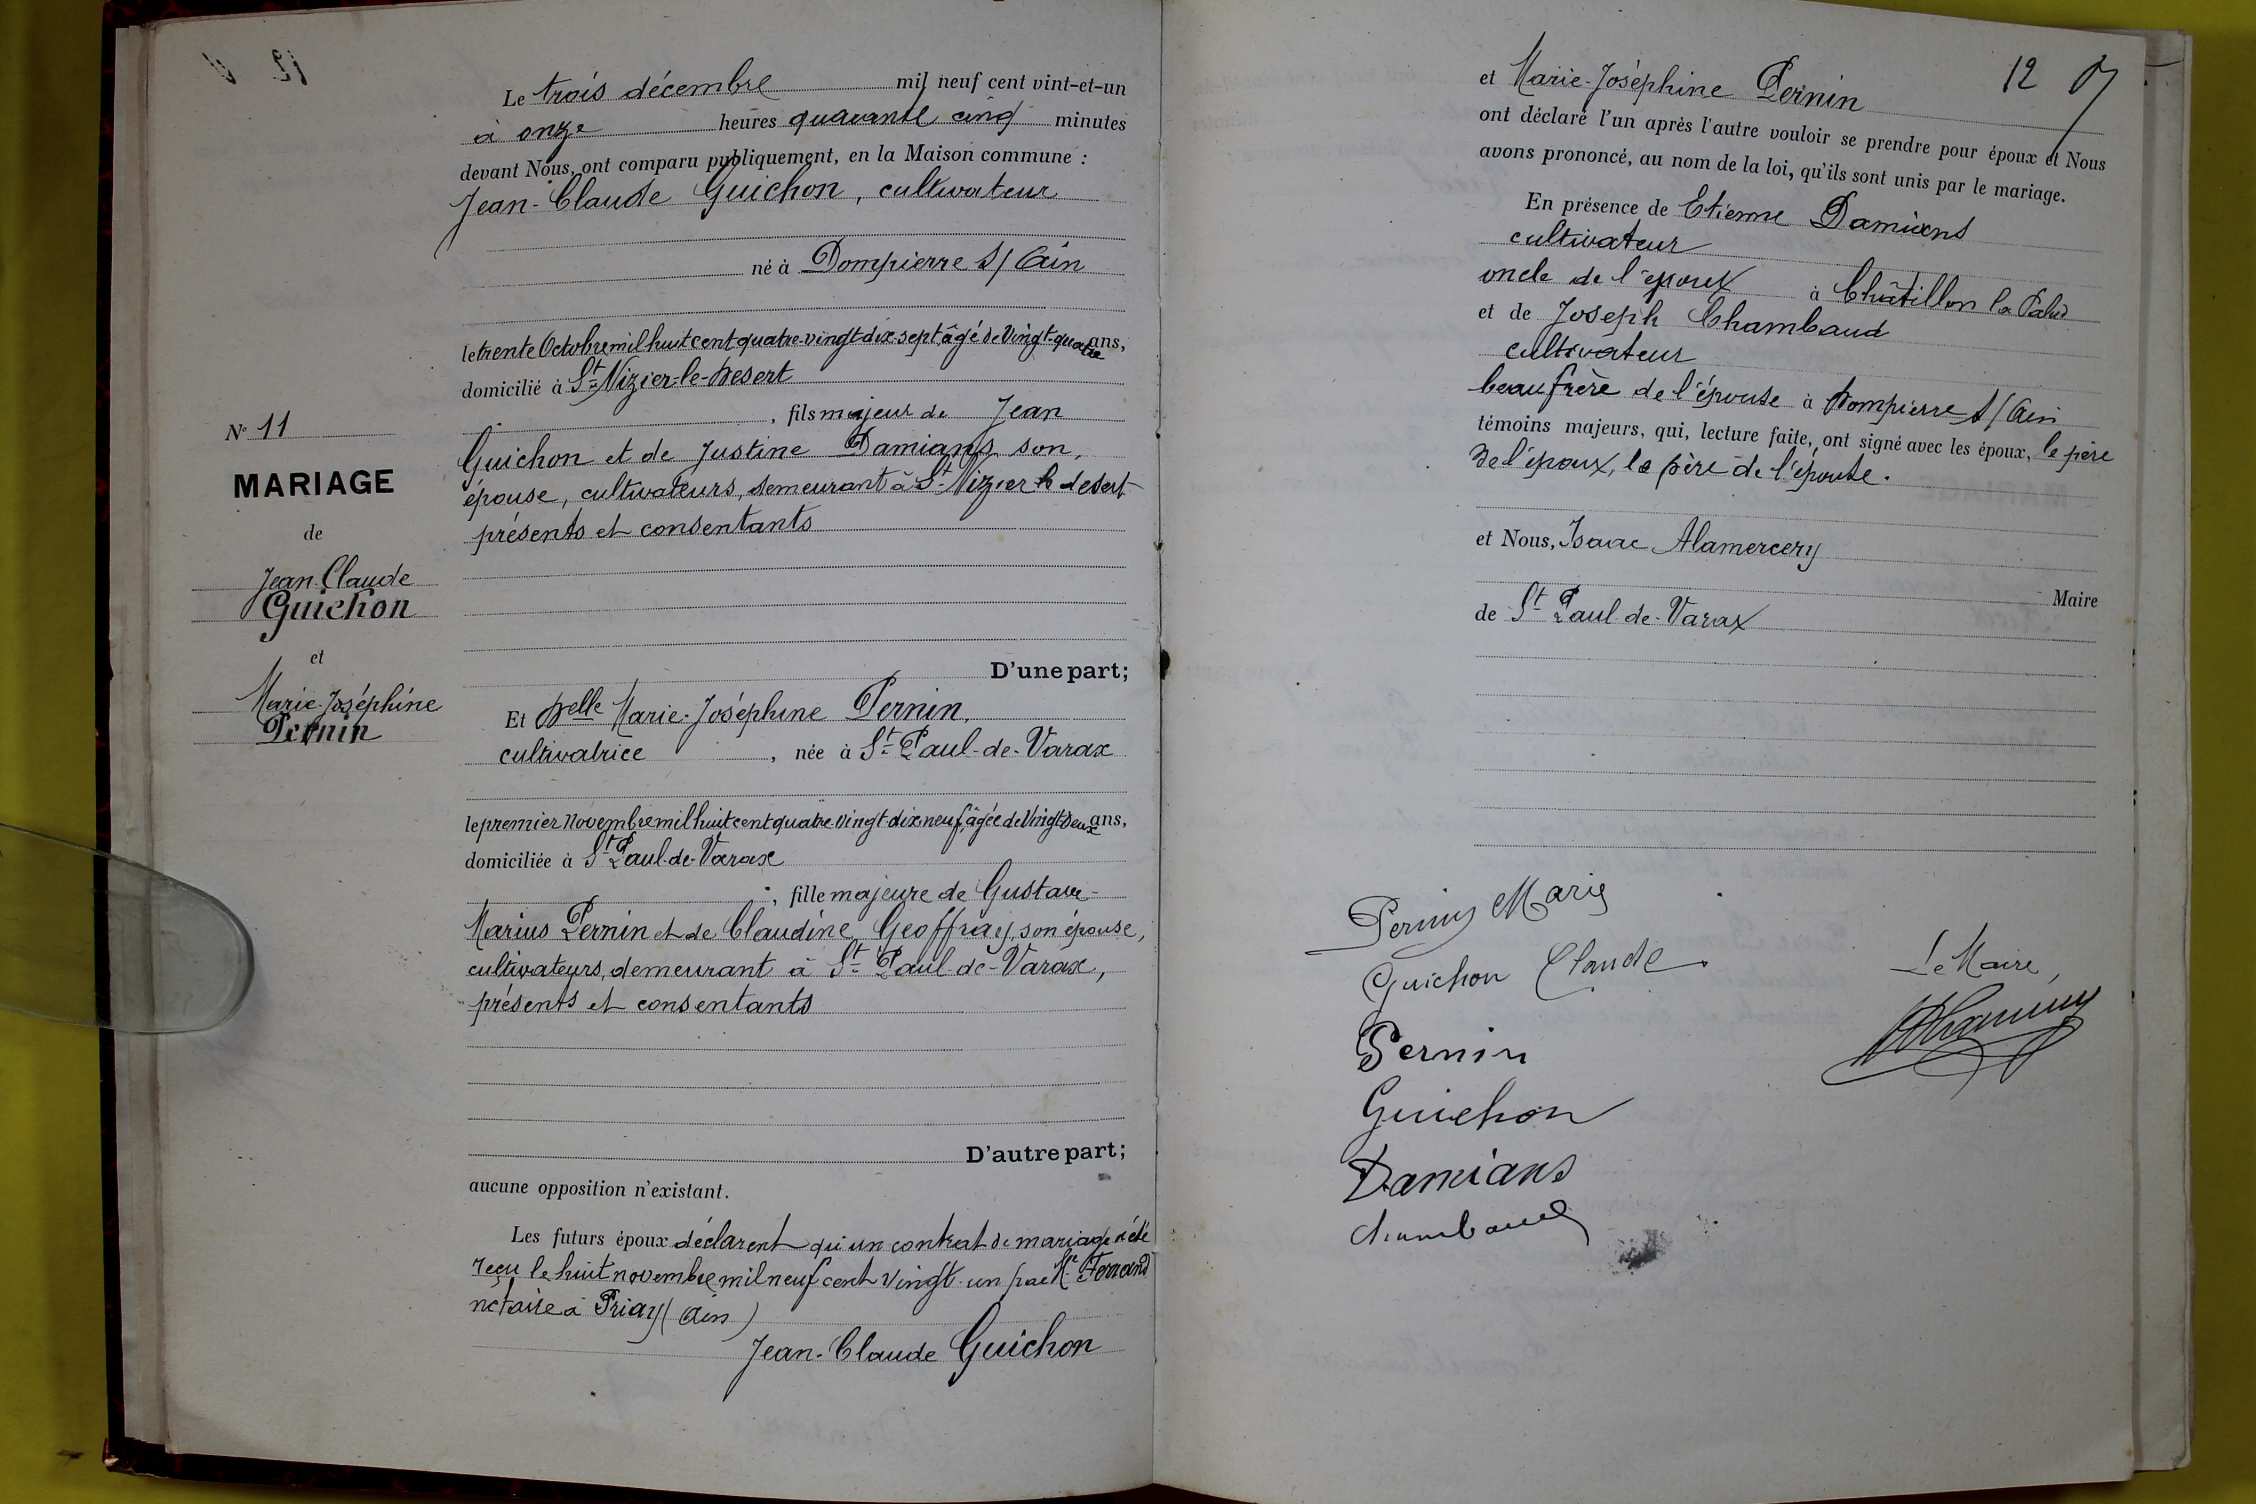 Le trois décembre mil neuf cent vint-et-un
à onze heures quarante cinq minutes
devant Nous, ont comparu publiquement, en la Maison commune :
Jean-Claude Guichon, cultivateur
né à Dompierre s/ Ain
le trente Octobre mil huit cent quatre-vingt-dix-sept, âgé de Vingt-quatre ans,
domicilié à St Nizier-le-Desert
, fils majeur de Jean
Guichon et de Justine Damians son
épouse, cultivateurs, demeurant à St Nizier le desert
présents et consentants
D'une part;
Et Delle Marie-Joséphine Pernin,
cultivatrice, née à St Paul-de-Varax
le premier Novembre mil huit cent quatre vingt-dix neuf, âgée de Vingt-deux ans,
domiciliée à St Paul-de-Varax
, fille majeure de Gustave-
Marius Pernin et de Claudine Geoffray, son épouse,
cultivateurs, demeurant à St Paul de-Varax,
présents et consentants
D'autre part;
aucune opposition n'existant.
Les futurs époux déclarent qu'un contrat de mariage a été
reçu le huit novembre mil neuf cent vingt-un par Me
notaire à Priay (Ain)
Jean-Claude Guichon
No 11
MARIAGE
de
Jean-Claude
Guichon
et
Marie-Joséphine
Pernin
12
et Marie-Joséphine Pernin
ont déclaré l'un après l'autre vouloir se prendre pour époux et Nous
avons prononcé, au nom de la loi, qu'ils sont unis par le mariage.
En présence de Etienne Damians
cultivateur
oncle de l'époux à Châtillon la Palud
et de Joseph Chambaud
cultivateur
beau frère de l'épouse à Dompierre s/ Ain
témoins majeurs, qui, lecture faite, ont signé avec les époux, le père
de l'époux, le père de l'épouse.
et Nous, Isaac Alamercery
Maire
de St Paul-de-Varax
Pernin Marie
Guichon Claude
Pernin
Guichon
Damians
Chambaud
Le Maire,